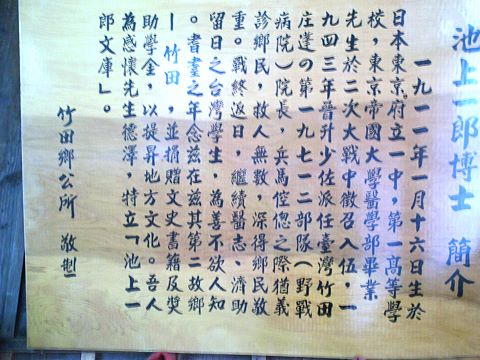 池上一郎博士 簡介
一九一一年一月十六日生於
日本東京府立一中，第一高等學
校，東京帝國大學醫學部畢業
先生於二次大戰中徵召入伍，一
九四三年晉升少佐派任臺灣竹田
庄達の第一九七二部隊（野戰
病院）院長，兵馬倥傯之際猶義
診鄉民，救人無數，深得鄉民敬
重。戰終返日，繼續醫志、濟助
留日之台灣學生，為善不欲人知
。耄耋之年念兹在兹其第二故鄉
—竹田，並捐贈文史書籍及獎
助學金，以提昇地方文化。吾人
為感懷先生德澤，特立「池上一
郎文庫」。
竹田鄉公所 敬製